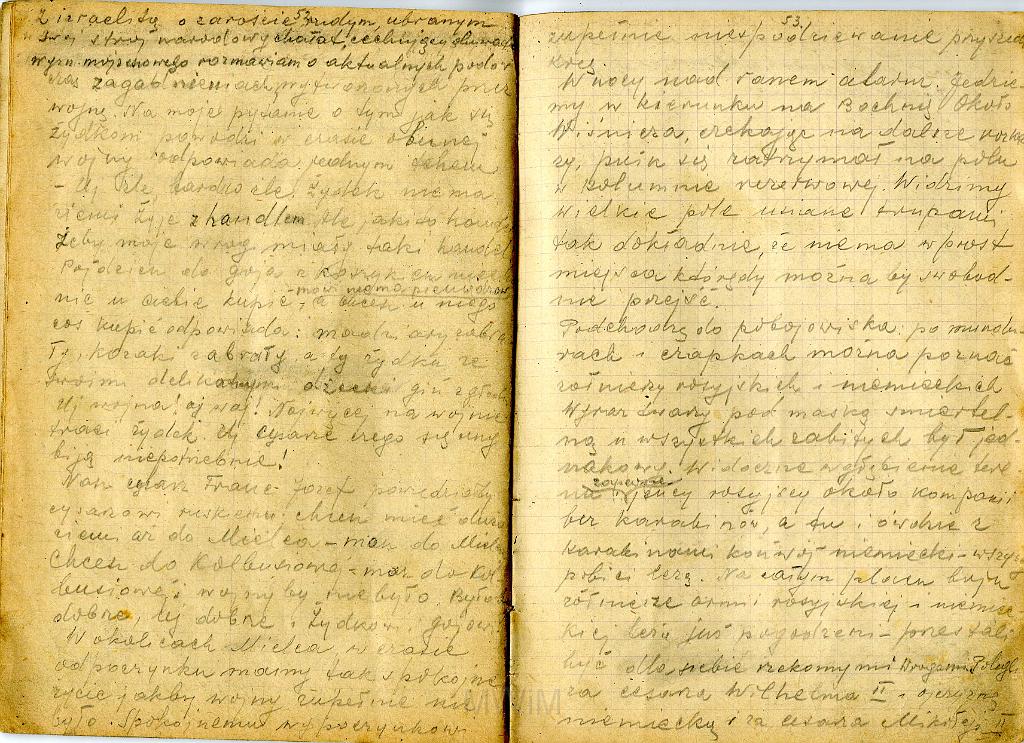 52
Z izraelitą o zaroście rudym, ubranym
w swój strój narodowy chałat, cechujący
wyzn. mojżeszowego rozmawiam o aktualnych
zagadnieniach wytworzonych przez
wojnę. Na moje pytanie o tym jak się
żydkom powodzi w czasie obecnej
wojny odpowiada jednym tchem
- Uj źle bardzo źle. Żydek niema
ziemi żyje z handlem, ale jaki to handel
żeby moje wróg miały taki handel
Pójdzieta do goja z koszykem
mówi niema pieniądzów
nic u ciebie kupić, a chcesz u niego
coś kupić odpowiada: madziary zabra-
ły, kozaki zabrały, a ty żydku ze
swoimi delikatnymi dziećmi giń z głodu
Uj wojna! aj waj! Najwięcej na wojnie
traci żydek. Uj cysarze czego się
biją niepotrzebnie!
Nasz cysarz Franc-Józef powiedziałby
cysarzowi ruskiemu chcesz mieć
ziemi aż do Mielca - masz do Mielca
Chcesz do Kolbuszowe - masz do Kol-
buszowe, i wojny by nie było. Było
dobrze, uj dobrze i żydkowi i gojowi.
W okolicach Mielca, w czasie
odpoczynku mamy tak spokojne
życie jakby wojny zupełnie nie
było. Spokojnemu wypoczynkowi
53.
zupełnie niespodziewanie przyszedł
kres.
W nocy nad ranem alarm. Jedzie-
my w kierunku na Bochnię. Około
Wiśnicza, czekając na dalsze rozka-
zy, pułk się zatrzymał na polu
w kolumnie rezerwowej. Widzimy
wielkie pole usiane trupami
tak dokładnie, że niema wprost
miejsca którędy można by swobod-
nie przejść.
Podchodzę do pobojowiska: po mundu-
rach i czapkach można poznać
żołnierzy rosyjskich i niemieckich
Wyraz twarzy pod maską śmiertel-
ną u wszystkich zabitych był jed-
nakowy. Widoczne wgłębienie tere-
zapewne
nu jeńcy rosyjscy około kompanii
bez karabinów, a tu i ówdzie z
karabinami konwój niemiecki - wszyscy
pobici leżą. Na całym placu boju
żołnierze armii rosyjskiej i niemiec-
kiej leżą już pogodzeni - przestali
być dla siebie rzekomymi wrogami. Polegli
za cesarza Wilhelma II i ojczyznę
niemiecką i za cesarza Mikołaja II